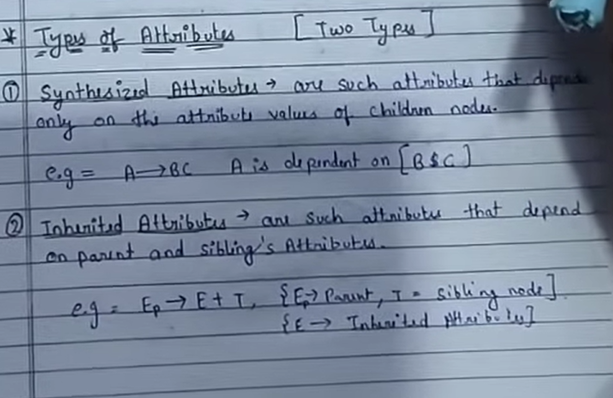 * Types of Attributes [Two Types]
① Synthesized Attributes → are such attributes that depend
only on the attribute values of children nodes.
e.g = A→BC A is dependent on [B & C]
② Inherited Attributes → are such attributes that depend
on parent and sibling's Attributes.
e.g = Ep → E + T, {Ep→ Parent, T = sibling node]
{E → Inherited Attributes]